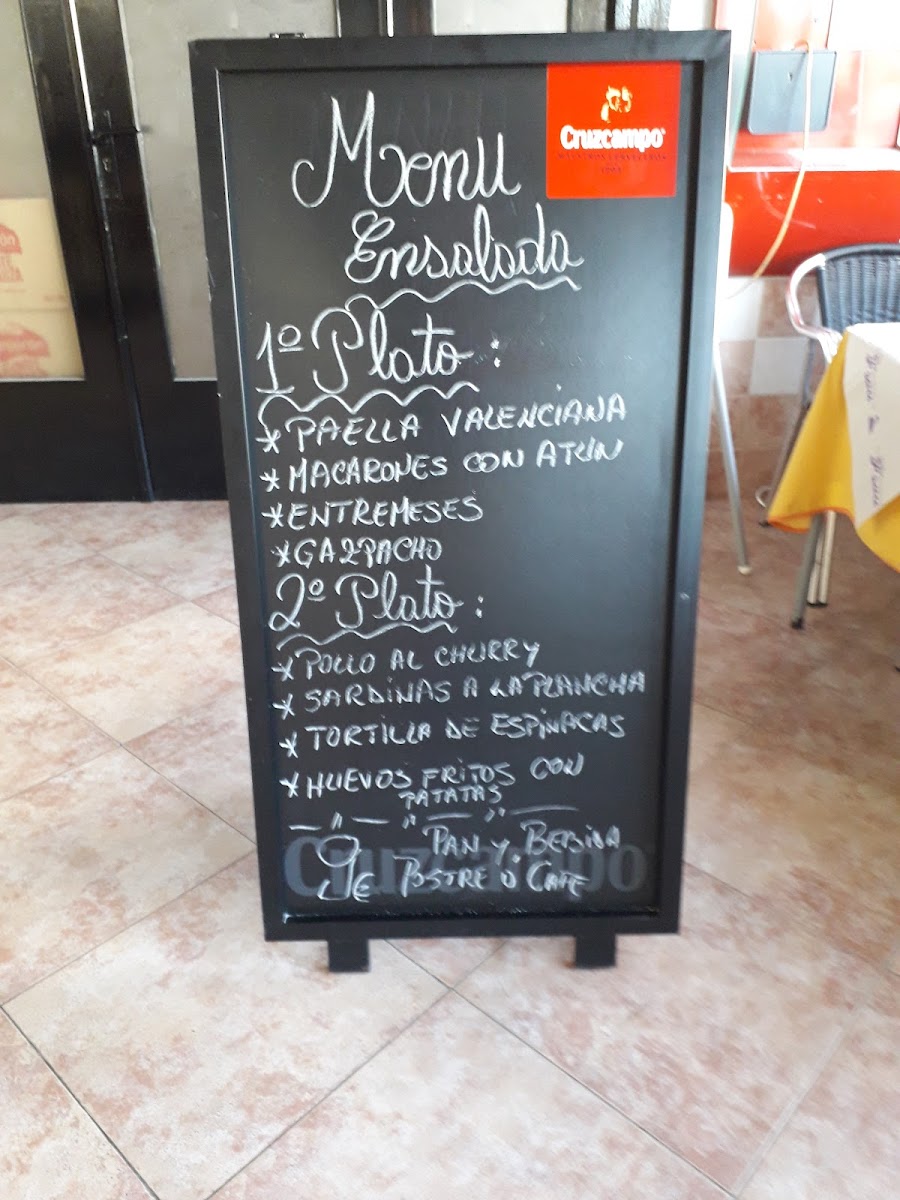 Menu
Cruzcampo
Ensalada
1º Plato:
* PAELLA VALENCIANA
* MACARONES CON ATUN
* ENTREMESES
* GAZPACHO
2º Plato:
* POLLO AL CHURRY
* SARDINAS A LA PLANCHA
* TORTILLA DE ESPINACAS
* HUEVOS FRITOS CON
PATATAS
9€ PAN Y BEBIDA
POSTRE O CAFE
Cruzcampo